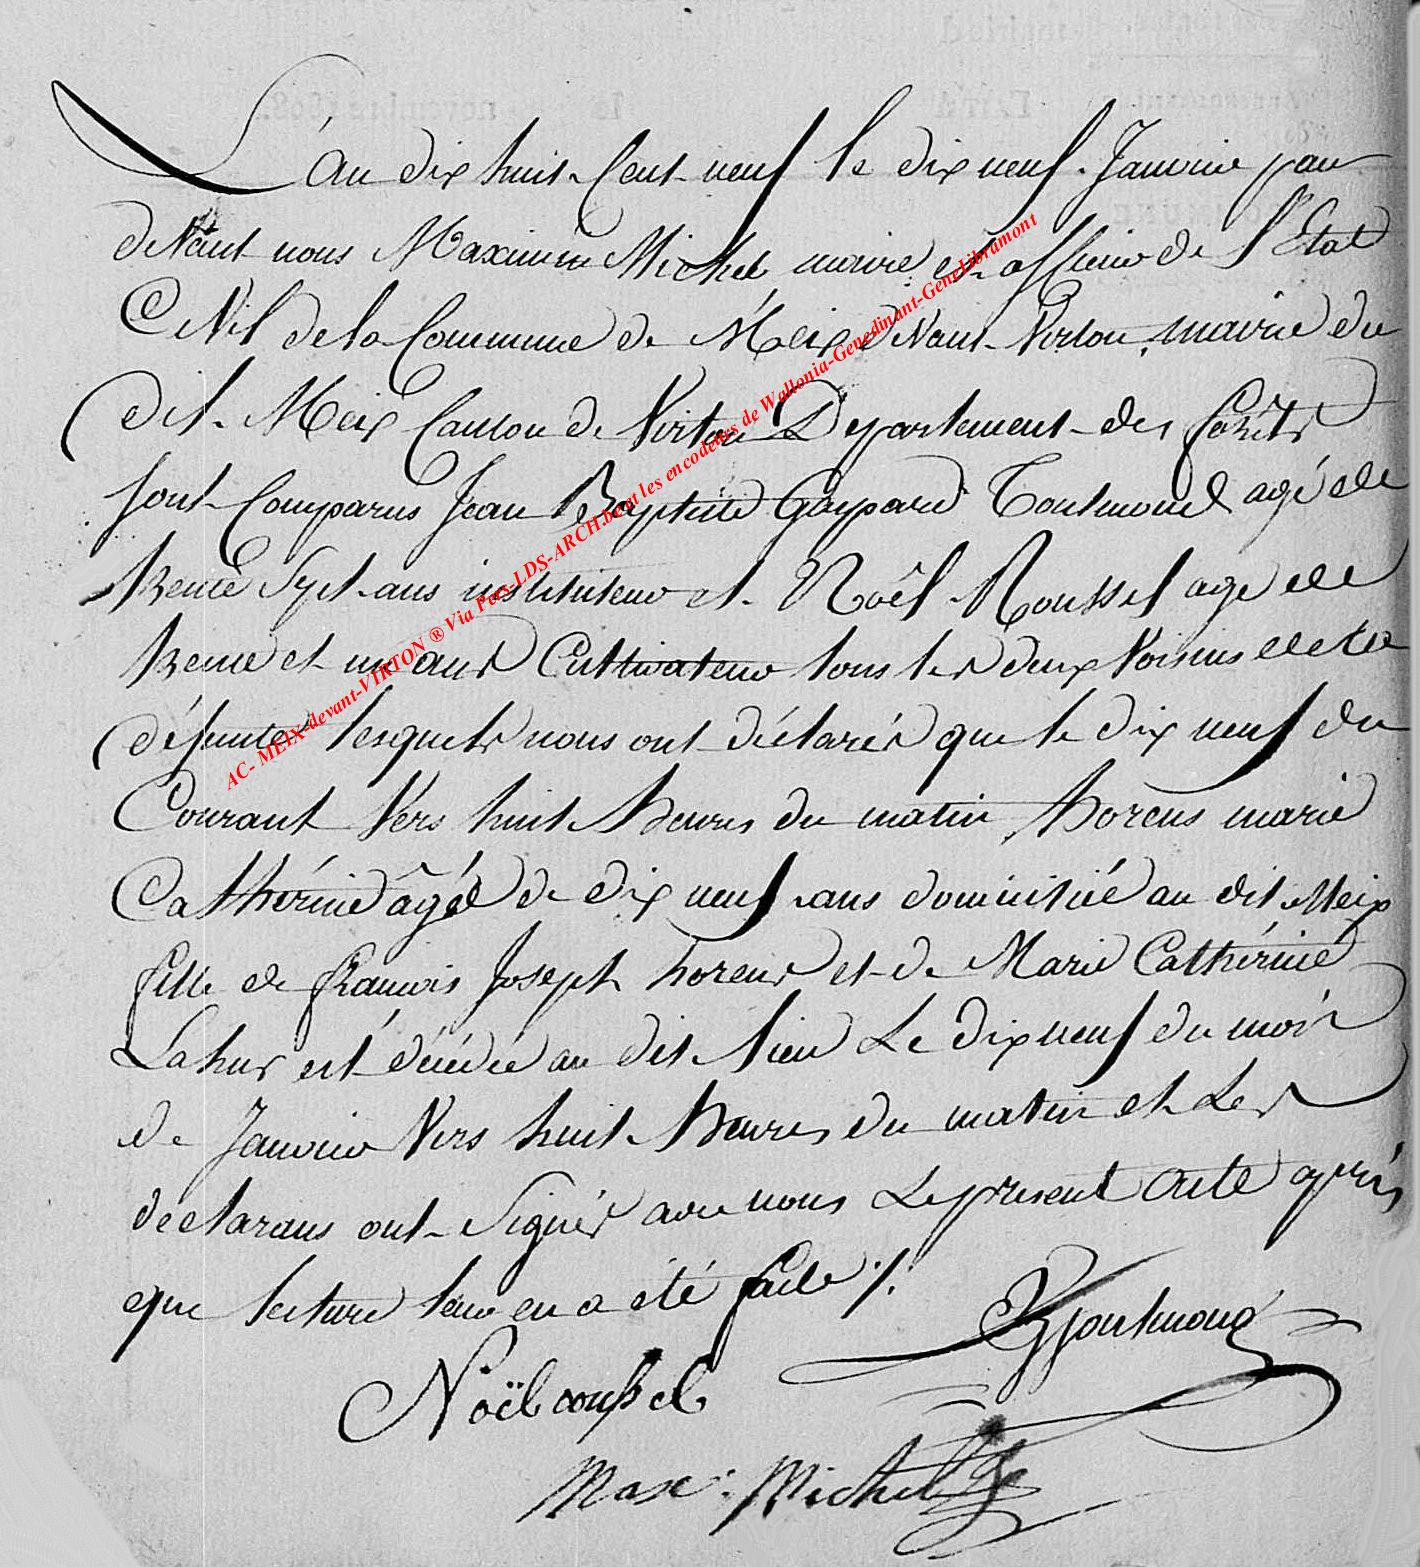 L'an dix huit Cent neuf le dix neuf Janvier par
devant nous Maximin Michel maire et officier de l'Etat
Civil de la Commune de Meix devant Virton, mairie du
dit Meix Canton de Virton Département des forêts
sont Comparus Jean Baptiste Gaspard Toutmond agé de
trente Sept ans instituteur et Noêl Roussel age de
trente et un ans Cultivateur tous les deux Voisins de la
défunte lesquels nous ont déclarés que le dix neuf du
Courant Vers huit heures du matin, horens marie
Cathérine âgée de dix neuf ans domicilié au dit Meix
fille de françois Joseph horens et de Marie Cathérine
Lahur est décédée au dit lieu Le dix neuf du mois
de Janvier Vers huit heures du matin et Les
declarans ont Signés avec nous Le present acte après
que lecture leur en a été faite ./.
Toutmond
Noël roussel
Max: Michel
AC- MEIX-devant-VIRTON ® Via Pers-LDS-ARCH.be et les encodeurs de Wallonia-Genedinant-GeneLibramont